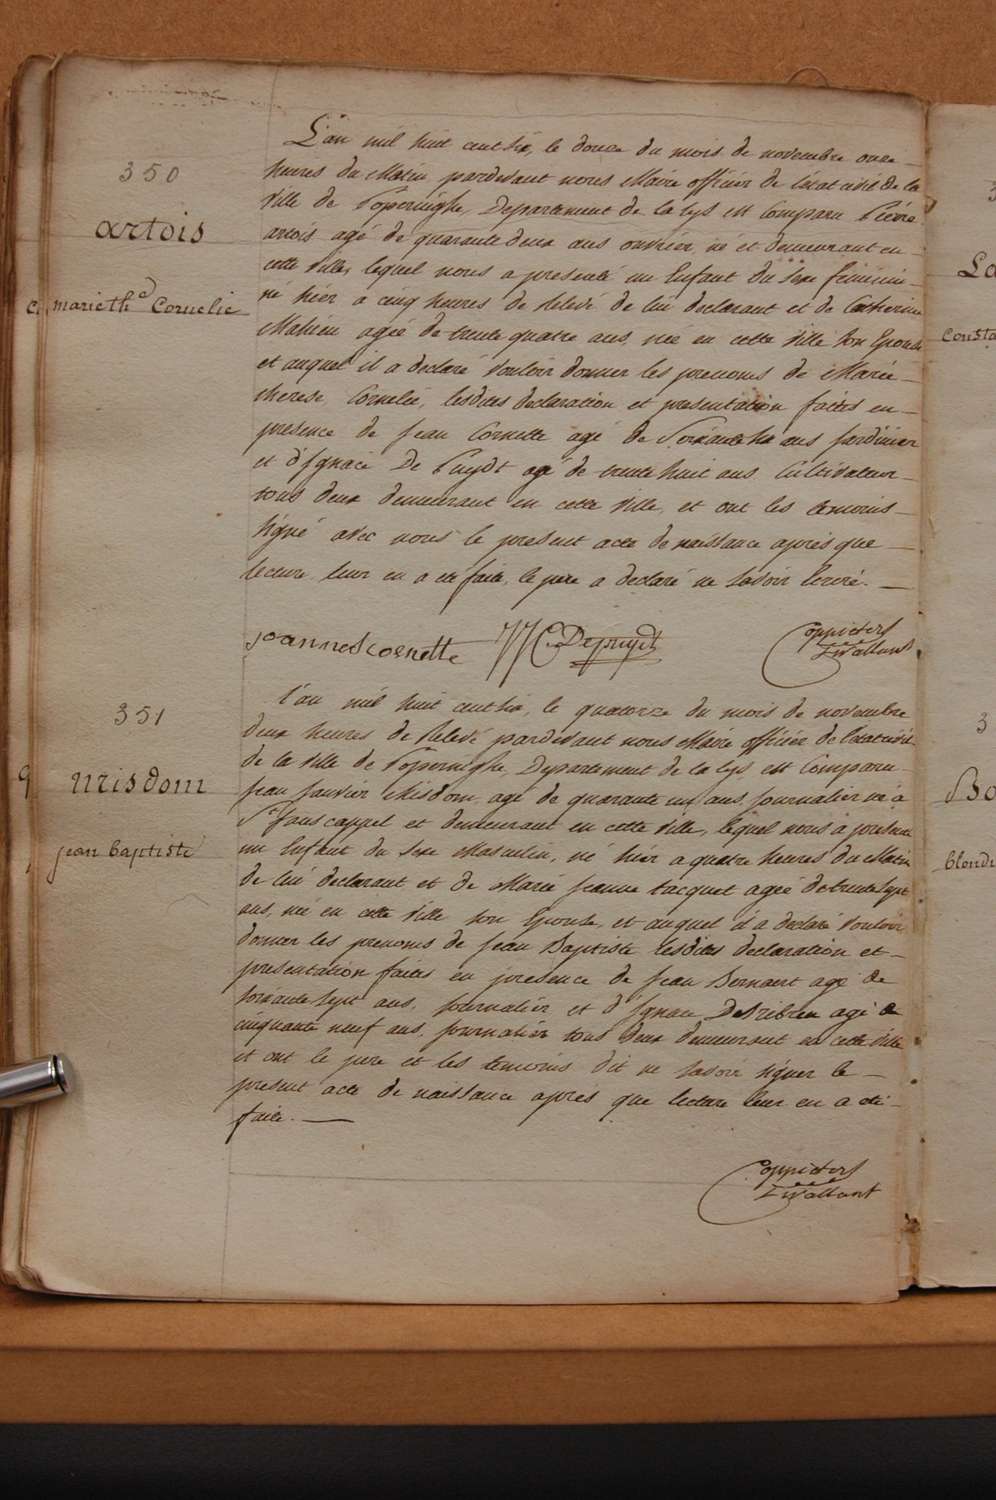 350
artois
marie th.e Cornelie
L'an mil huit cent six, le douze du mois de novembre onze
heures du Matin pardevant nous Maire officier de l'état civil de la
ville de Poperinghe, Departement de la Lys est Comparu Pierre
artois agé de quarante deux ans ouvrier né et demeurant en
cette ville, lequel nous a presenté un Enfant du sexe feminin
né hier a cinq heures de relevé de lui declarant et de Catherine
Mahieu agée de trente quatre ans, née en cette ville son Epouse
et auquel il a declaré vouloir donner les prenoms de Marie
therese Cornelie, lesdites declaration et presentation faites en
presence de Jean Cornette agé de Soixante six ans Jardinier
et d'Ignace De Puydt agé de trente huit ans Cultivateur
tous deux demeurant en cette ville, et ont les temoins
signé avec nous le present acte de naissance après que
lecture leur en a été faite, le pere a declaré ne savoir Ecrire.
joannes cornette Depuydt Coppieters
Stvallant
351
Misdom
jean baptiste
L'an mil huit cent six, le quatorze du mois de novembre
deux heures de Relevé pardevant nous Maire officier de l'état civil
de la ville de Poperinghe, Departement de la Lys est Comparu
Jean Misdom, agé de quarante un ans, journalier né a
St Jans cappel et demeurant en cette ville, lequel nous à presenté
un Enfant du Sexe Masculin, né hier a quatre heures du Matin
de lui declarant et de Marie Jeanne tacquet agée de trente sept
ans, née en cette ville son Epouse, et auquel il a declaré vouloir
donner les prenoms de Jean Baptiste lesdites declaration et
presentation faites en presence de Jean Bernaert agé de
soixante sept ans, journalier et d'Ignace agé de
cinquante neuf ans, journalier tous deux demeurant en cette ville
et ont le pere et les temoins dit ne savoir signer le
present acte de naissance après que lecture leur en a été
faite.
Coppieters
Stvallant